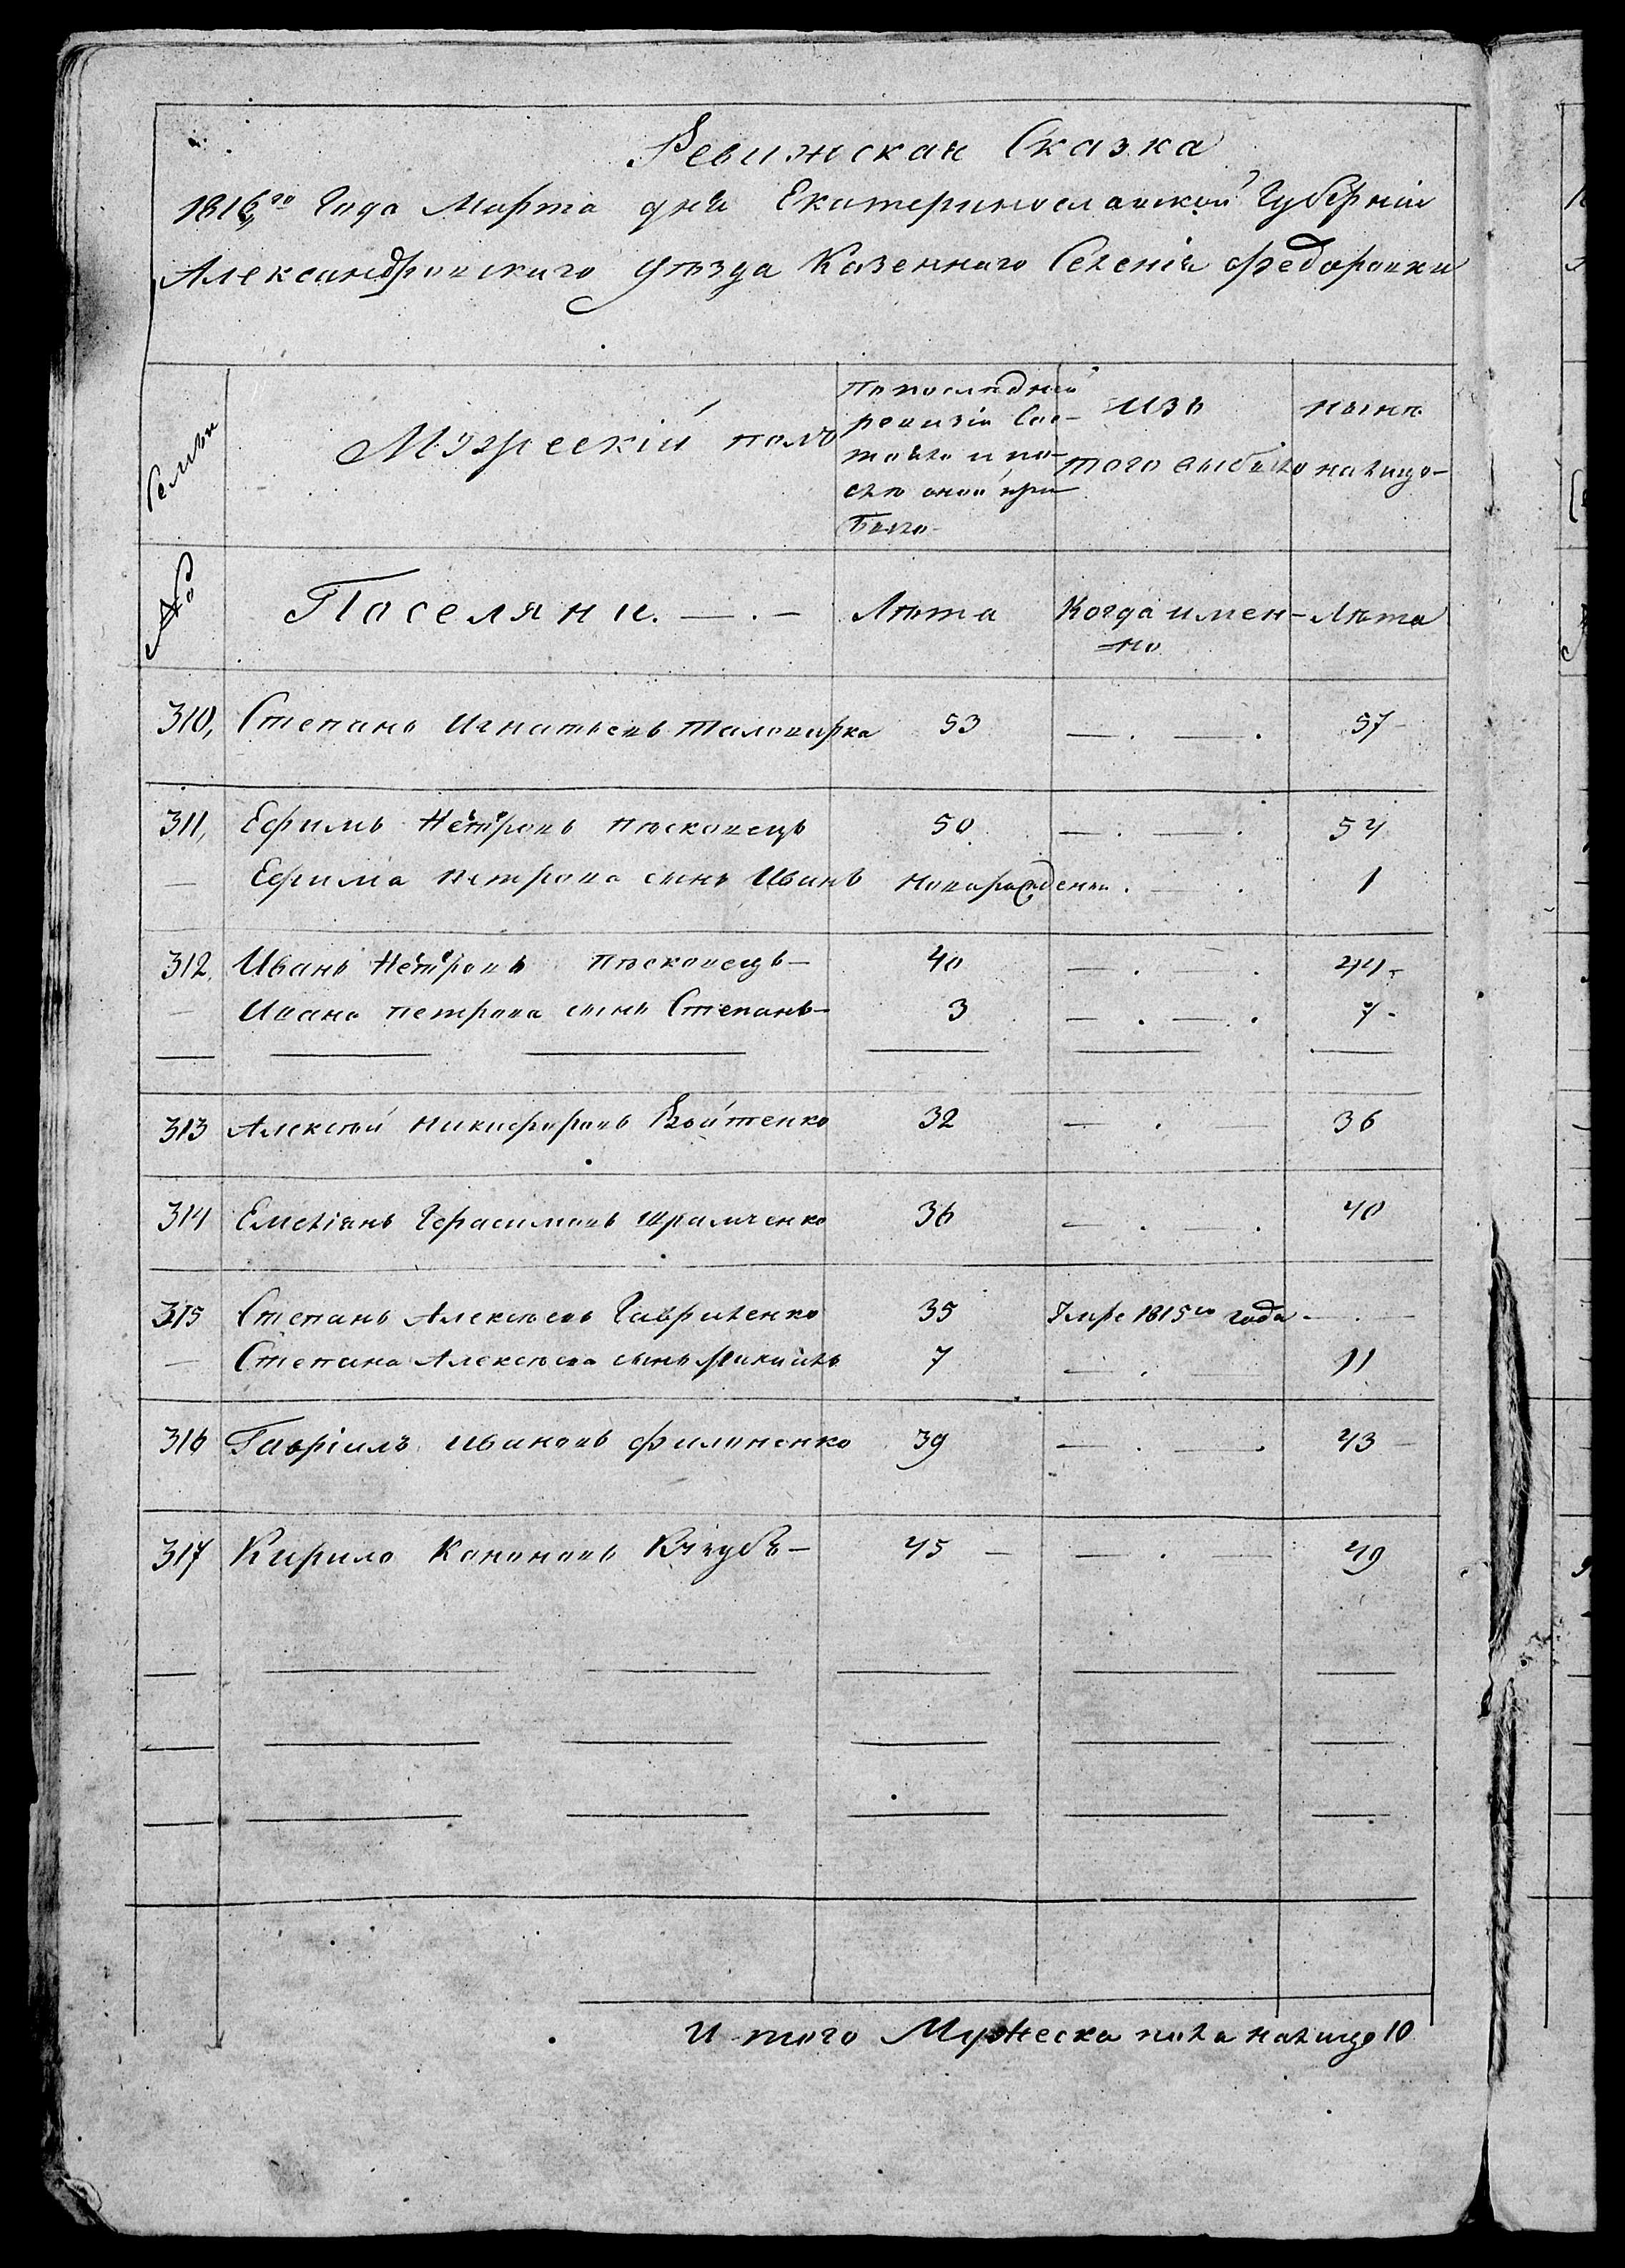 Ревижская Сказка
1816го Года Марта дня Екатеринославской Губерніи
Александровскаго уѣзда Казеннаго Селенія Федоровки
Семьи
Мужескій полъ
По последней
ревизіи Сос-
тояло и по-
сле оной при
было
изъ
того выбыло
нынѣ
на лицо-
№
Поселяни. — . —
Лѣта
Когда имен-
=но
Лѣта
310, Степанъ Игнатьевъ Таловирка 53 — . — . 57
311, Ефимъ Петровъ Песковецъ 50 — . — . 54
— Ефима Петрова сынъ Иванъ новорожденъ . — . 1
312, Иванъ Петровъ Песковецъ — 40 — . . 44
— Ивана Петрова сынъ Степанъ — 3 — . — . 7
313 Алексѣй Никифоровъ Войтенко 32 — . — 36
314 Емеліянъ Герасимовъ Шрамченко 36 — . — . 40
315 Степанъ Алексѣевъ Гавриленко 35 Умре 1815го года — . —
— Степана Алексѣева сынъ Михайлъ 7 — . — 11
316 Гавріилъ Ивановъ Филоненко 39 — . — . 43
317 Кирило Кононовъ — 45 — — . — 49
И того Мужеска пола на лицо 10